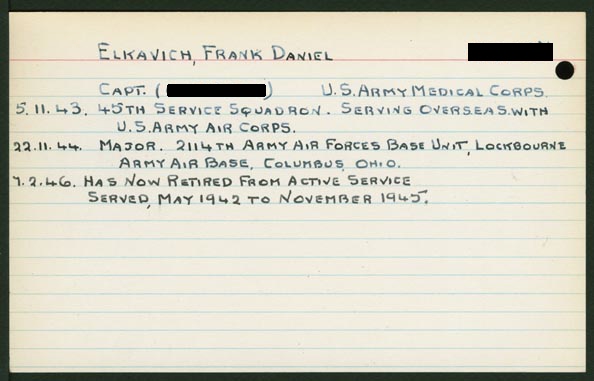 ELKAVICH, FRANK DANIEL
CAPT. ( ) U.S. ARMY MEDICAL CORPS.
5.11.43. 45TH SERVICE SQUADRON. SERVING OVERSEAS WITH
U.S. ARMY AIR CORPS.
22.11.44. MAJOR. 2114TH ARMY AIR FORCES BASE UNIT, LOCKBOURNE
ARMY AIR BASE, COLUMBUS, OHIO.
7.2.46. HAS NOW RETIRED FROM ACTIVE SERVICE
SERVED, MAY 1942 TO NOVEMBER 1945.